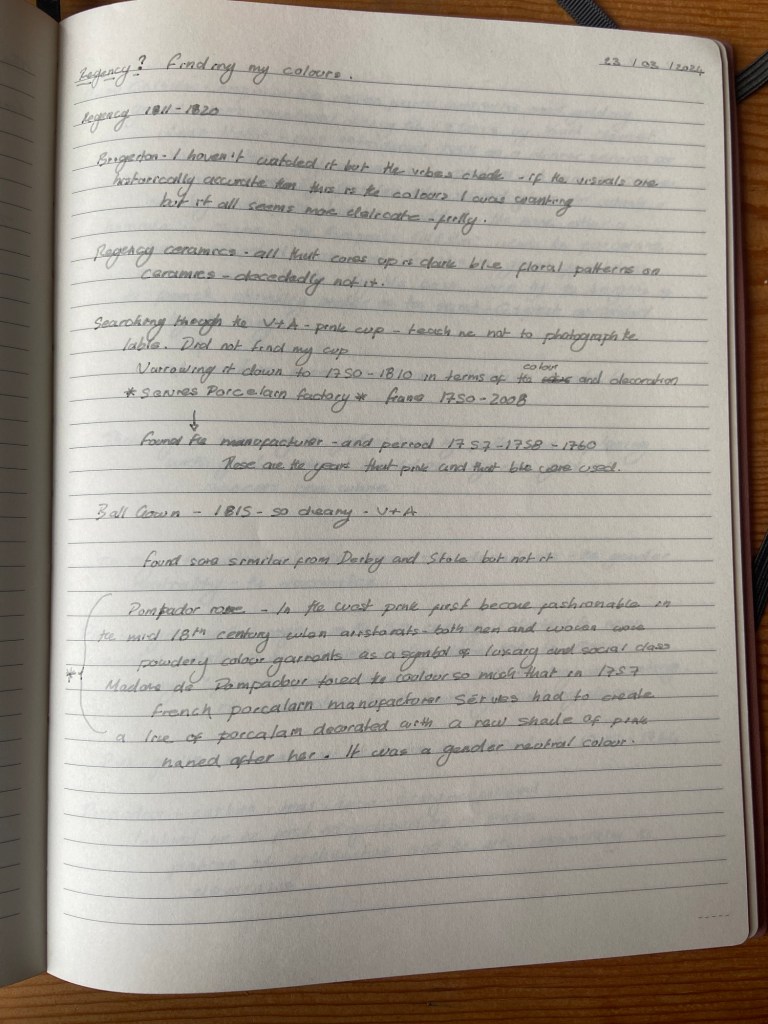 Regency? Finding my colours.
23 / 03 / 2024
Regency 1811 - 1820
Brigerton - I haven't watched it but the vibes check - if the visuals are
historically accurate then this is the colours I was wanting
but it all seems more - pretty.
Regency ceramics - all that comes up is dark blue floral patterns on
ceramics - decededly not it.
Searching though the V+A - pink cup - teach me not to photograph the
lable. Did not find my cup
Narrowing it down to 1750 - 1810 in terms of the colour and decoration
* Servres Porcelain factory * frans 1750 - 2008
↓
found the manufacturer - and period 1757 - 1758 - 1760
These are the years that pink and that blue were used.
Ball Gown - 1815 - so dreamy - V+A
found some similar from Derby and Stoke but not it
Pompador rose - In the west pink first became fashionable in
the mid 18th century when aristorats - both men and women wore
powdery colour garments as a symbol of luxury and social class
* Madame de Pompadour loved the coolour so much that in 1757
french porcalain manufacturer Serves had to create
a line of porcalain decorated with a new shade of pink
named after her. It was a gender neutral colour.